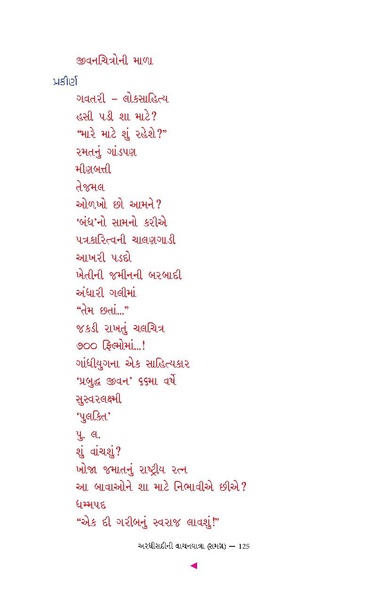 જીવનચિત્રોની માળા
પ્રકીર્ણ
ગવતરી – લોકસાહિત્ય
હસી પડી શા માટે?
“મારે માટે શું રહેશે?”
રમતનું ગાંડપણ
મીણબત્તી
તેજમલ
ઓળખો છો આમને?
‘બંધ’નો સામનો કરીએ
પત્રકારિત્વની ચાલણગાડી
આખરી પડદો
ખેતીની જમીનની બરબાદી
અંધારી ગલીમાં
“તેમ છતાં...”
જકડી રાખતું ચલચિત્ર
૭૦૦ ફિલ્મોમાં...!
ગાંધીયુગના એક સાહિત્યકાર
‘પ્રબુદ્ધ જીવન’ ૬૬મા વર્ષે
સુસ્વરલક્ષ્મી
‘પુલકિત’
પુ. લ.
શું વાંચશું?
ખોજા જમાતનું રાષ્ટ્રીય રત્ન
આ બાવાઓને શા માટે નિભાવીએ છીએ?
ધમ્મપદ
“એક દી ગરીબનું સ્વરાજ લાવશું!”
અરધીસદીની વાચનયાત્રા (સમગ્ર) — 125